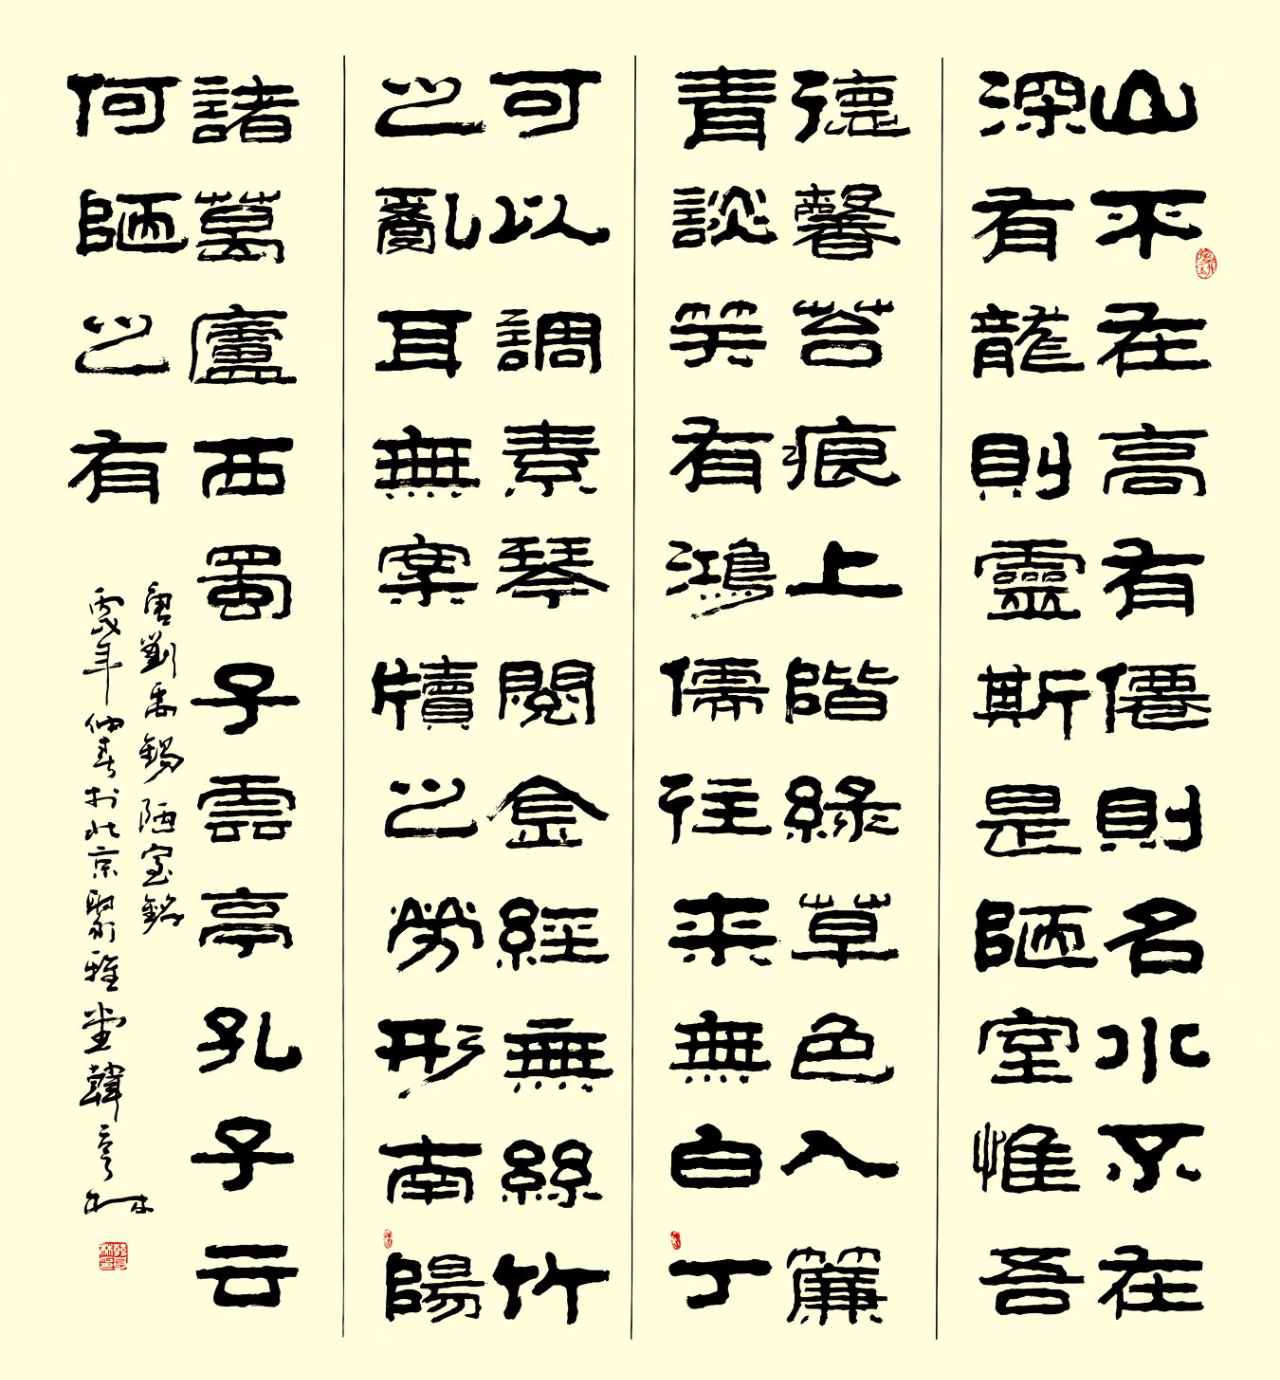 山不在高有僊則名水不在
深有龍則靈斯是陋室惟吾
德馨苔痕上階緑草色入簾
青談笑有鴻儒往来無白丁
可以調素琴閱金經無絲竹
之亂耳無案牘之勞形南陽
諸萬廬西蜀子雲亭孔子云
何陋之有
唐劉禹錫陋室銘
丙戌年仲春於北京聚雅堂韓亨林